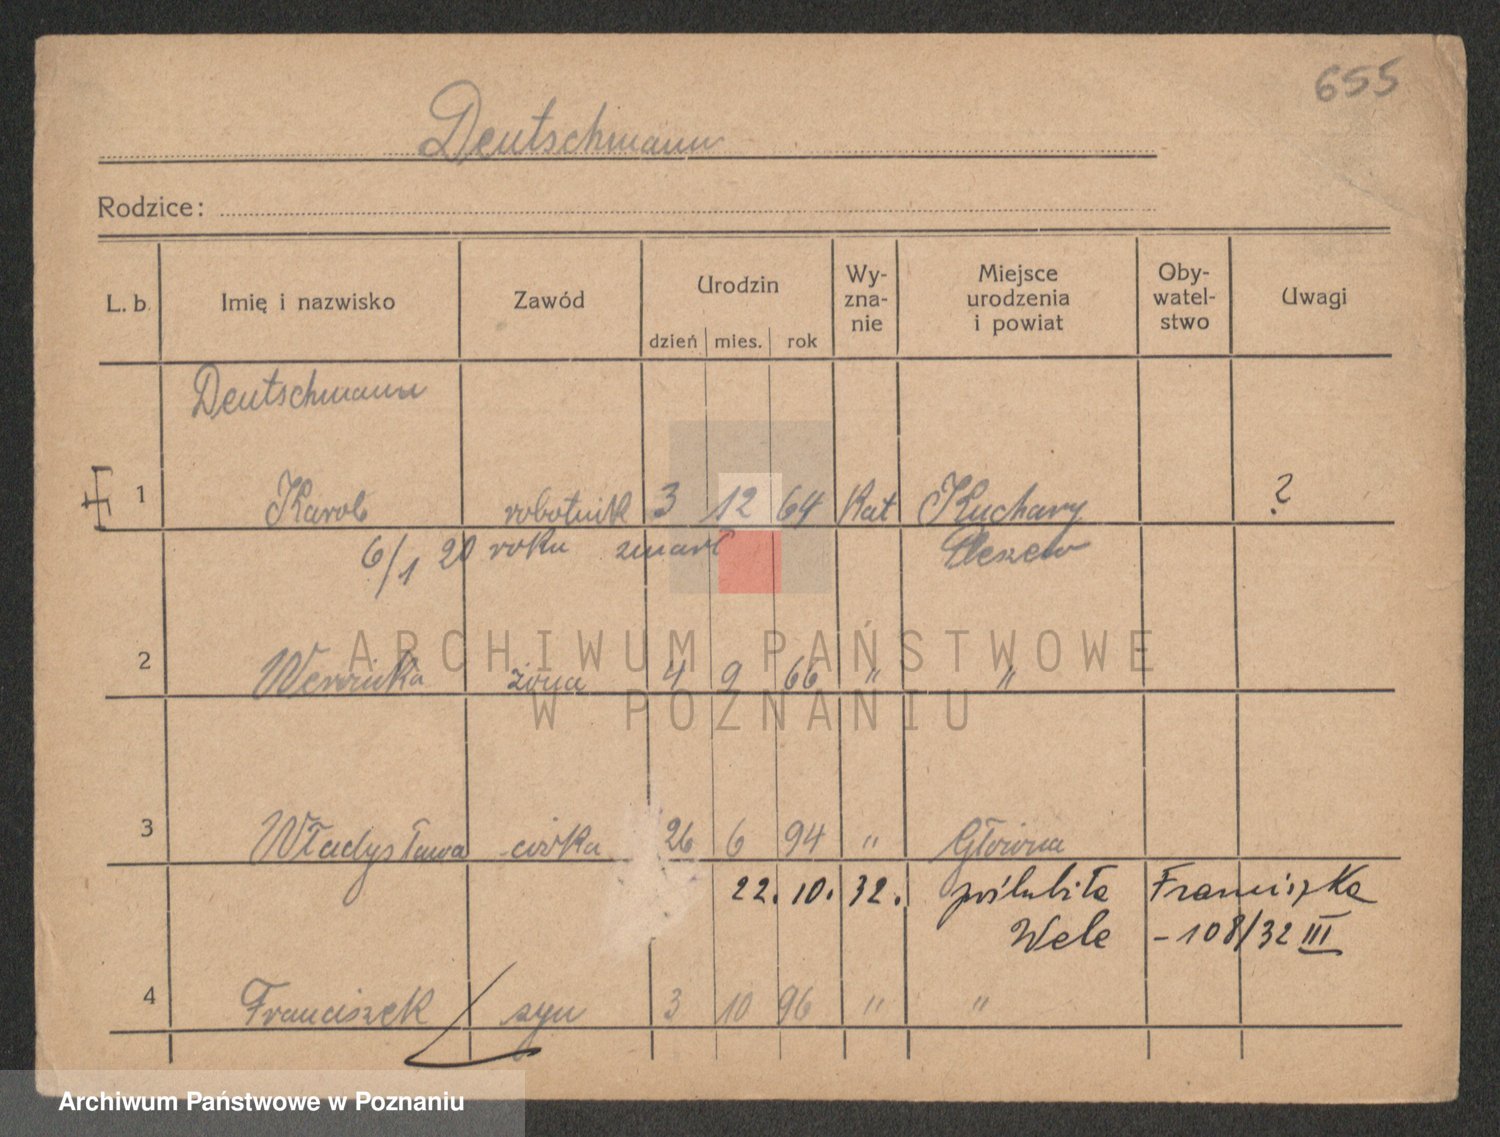 655
Deutschmann
Rodzice:
L. b. Imię i nazwisko Zawód Urodzin dzień mies. rok Wy-zna-nie Miejsce urodzenia i powiat Oby-watel-stwo Uwagi
Deutschmann
1 Karol robotnik 3 12 64 Kat Kuchary ?
6/1 20 roku zmarł Pleszew
2 Weronika żona 4 9 66 " "
3 Władysława córka 26 6 94 " Główna
22. 10. 32. poślubiła Franciszka
Wele - 108/32 III
4 Franciszek syn 3 10 96 " "
ARCHIWUM PAŃSTWOWE
W POZNANIU
Archiwum Państwowe w Poznaniu